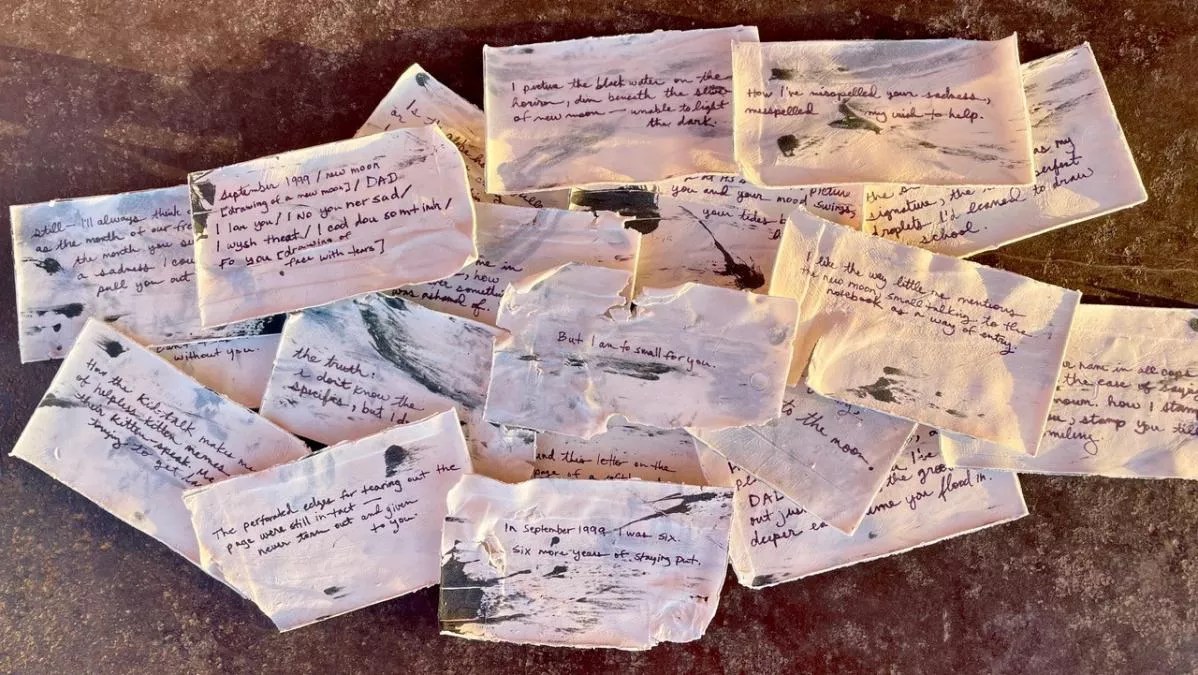 I picture the black water on the
horizon, dim beneath the
of new moon — unable to light
the dark.
How I've misspelled your sadness,
misspelled my wish to help.
as my
signature, the
droplets I'd learned to draw
school.
picture
you and your mood swings,
your tides
September 1999 / new moon
[drawing of a new moon] / DAD
I lov you / I No you ner sad /
I wysh theat / I cod dou somt inh /
Fo you [drawing of
face with tears]
still — I'll always think
as the month of our
the month you
a sadness I
pull you out
without you.
me in
, how
somethi
was ashamed of.
But I am to small for you.
I like the way little me mentions
the new moon, small-talking to the
notebook as a way of entry.
name in all caps
the case of
noun. how I stam
, stamp you
miling.
the truth:
i don't know the
specifics, but I d
How the kid-talk makes me
of helpless kitten memes
their kitten-speak. Me
trying to get
to the moon.
I've
the groo
DAD
out jus
deeper me you flood in.
The perforated edges for tearing out the
page were still in-tact —
never torn out and given
to you.
and this letter on the
page of a
In September 1999 I was six.
six more years of staying put.